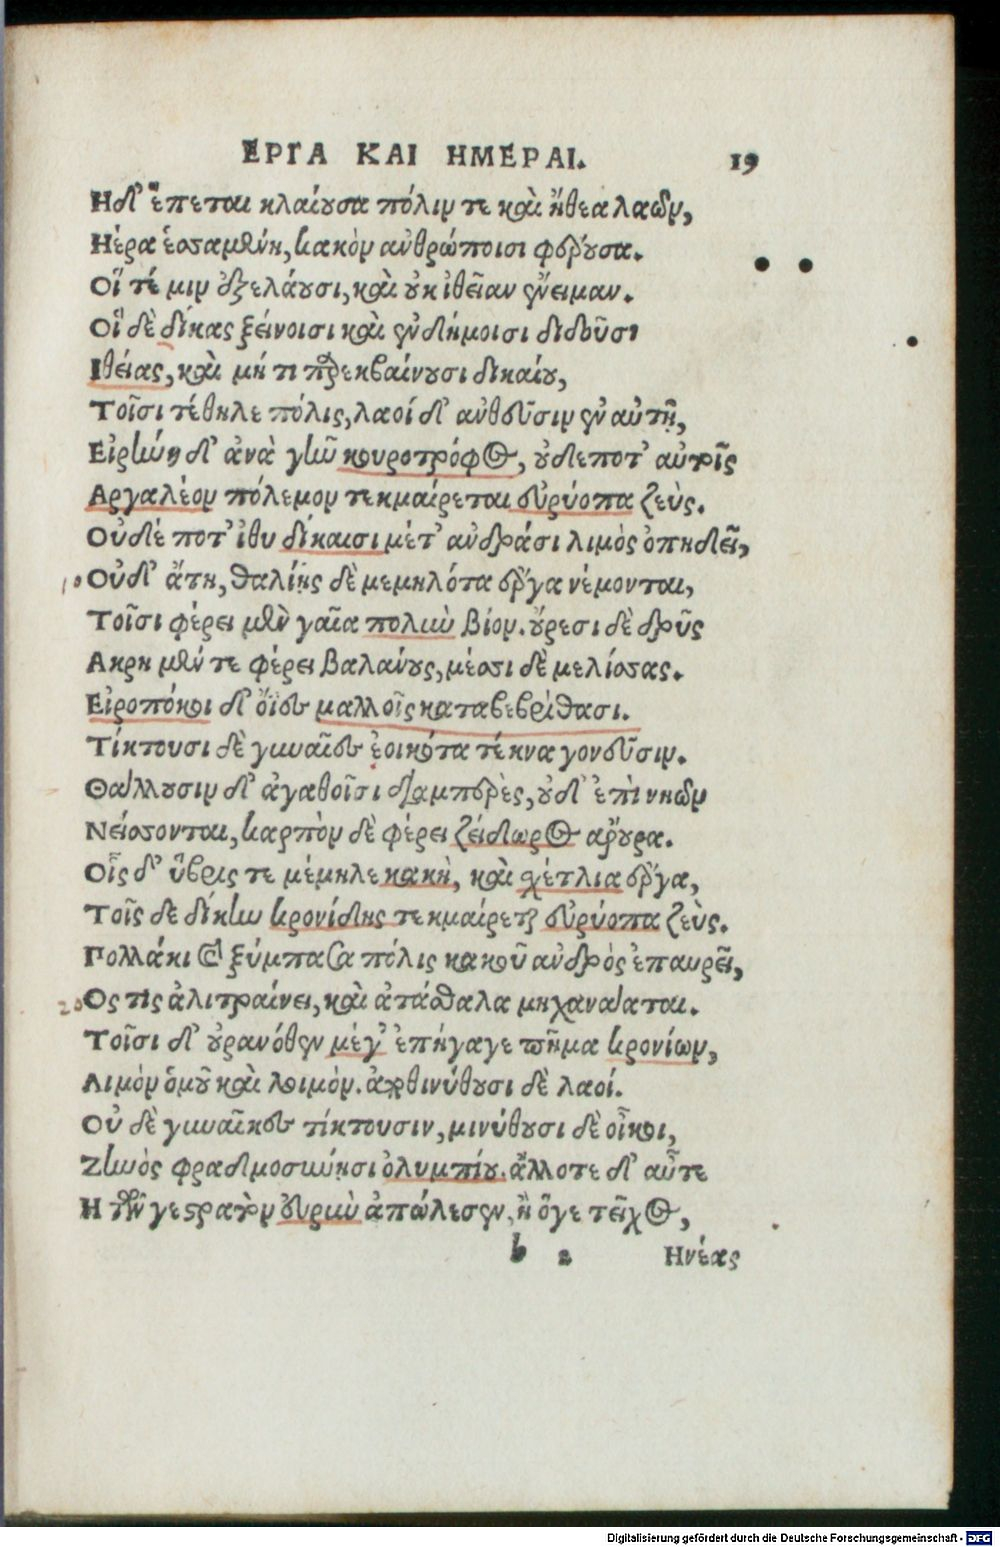 ΕΡΓΑ ΚΑΙ ΗΜΕΡΑΙ. 19
Ηδ' ἕπεται κλαίουσα πόλιν τε καὶ ἤθεα λαῶν,
Ηέρα ἑσσαμένη, κακὸν ἀνθρώποισι φέρουσα.
Οἵ τέ μιν ἐξελάουσι, καὶ οὐκ ἰθεῖαν ἔνειμαν.
Οἳ δὲ δίκας ξείνοισι καὶ ἐνδήμοισι διδοῦσι
Ιθείας, καὶ μή τι παρεκβαίνουσι δικαίου,
Τοῖσι τέθηλε πόλις, λαοί δ' ἀνθεῦσιν ἐν αὐτῇ,
Εἰρήνη δ' ἀνὰ γῆν κουροτρόφος, οὐδέποτ' αὐτοῖς
Αργαλέον πόλεμον τεκμαίρεται εὐρύοπα ζεύς.
Οὐδέ ποτ' ἰθυδίκαισι μέτ' ἀνδράσι λιμὸς ὀπηδεῖ,
10 Οὐδ' ἄτη, θαλίῃς δὲ μεμηλότα ἔργα νέμονται,
Τοῖσι φέρει μὲν γαῖα πολὺν βίον. οὔρεσι δὲ δρῦς
Ακρη μέν τε φέρει βαλάνους, μέσσι δὲ μελίσσας.
Εἰροπόκοι δ' ὄϊες μαλλοῖς καταβεβρίθασι.
Τίκτουσι δὲ γυναῖκες ἐοικότα τέκνα γονεῦσιν.
Θάλλουσιν δ' ἀγαθοῖσι διαμπερὲς, οὐδ' ἐπὶ νηῶν
Νείσσονται, καρπὸν δὲ φέρει ζείδωρος ἄρουρα.
Οἷς δ' ὕβρις τε μέμηλε κακὴ, καὶ σχέτλια ἔργα,
Τοῖς δὲ δίκην κρονίδης τεκμαίρεται εὐρύοπα ζεύς.
Πολλάκι καὶ ξύμπασα πόλις κακοῦ ἀνδρὸς ἐπαυρεῖ,
20 Ος τις ἀλιτραίνει, καὶ ἀτάσθαλα μηχανάαται.
Τοῖσι δ' οὐρανόθεν μέγ' ἐπήγαγε πῆμα κρονίων,
Λιμὸν ὁμοῦ καὶ λοιμόν. ἀποφθινύθουσι δὲ λαοί.
Οὐ δὲ γυναῖκες τίκτουσιν, μινύθουσι δὲ οἶκοι,
Ζηνὸς φραδμοσύνῃσι ὀλυμπίου. ἄλλοτε δ' αὖτε
Η τῶν γε στρατὸν εὐρὺν ἀπώλεσεν, ἢ ὅγε τεῖχος,
b 2 Ηνέας
Digitalisierung gefördert durch die Deutsche Forschungsgemeinschaft - DFG